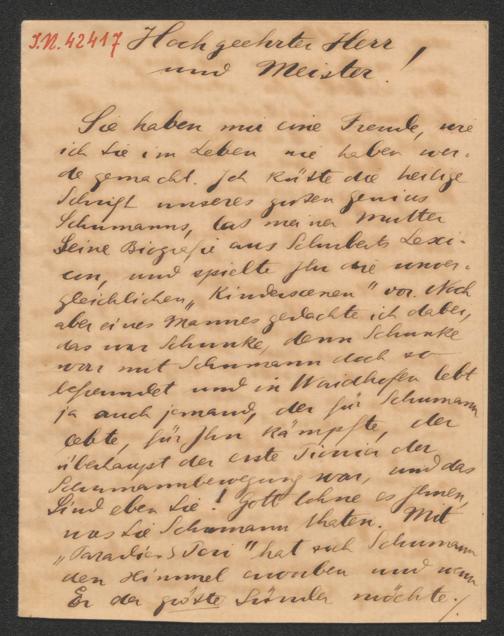 I.N. 42417
Hochgeehrter Herr
und Meister!
Sie haben mir eine Freude, wie
ich Sie im Leben nie haben wer-
de gemacht. Ich küßte die heilige
Schrift unseres großen Genius
Schumanns, las meiner Mutter
Seine Biografie aus Schuberts Lexi-
con, und spielte Ihr die unver-
gleichlichen „Kinderscenen" vor. Noch
aber eines Mannes gedachte ich dabei,
das war Schunke, denn Schunke
war mit Schumann doch so
befreundet und in Waidhofen lebt
ja auch jemand, der für Schumann
lebte, für Ihn kämpfte, der
überhaupt der erste der
Schumannbewegung war, und das
Sind eben Sie! Gott lohne es Ihnen,
was Sie Schumann thaten. Mit
„Paradies & Peri" hat sich Schumann
den Himmel erworben und wenn
Er der größte Sünder möchte./